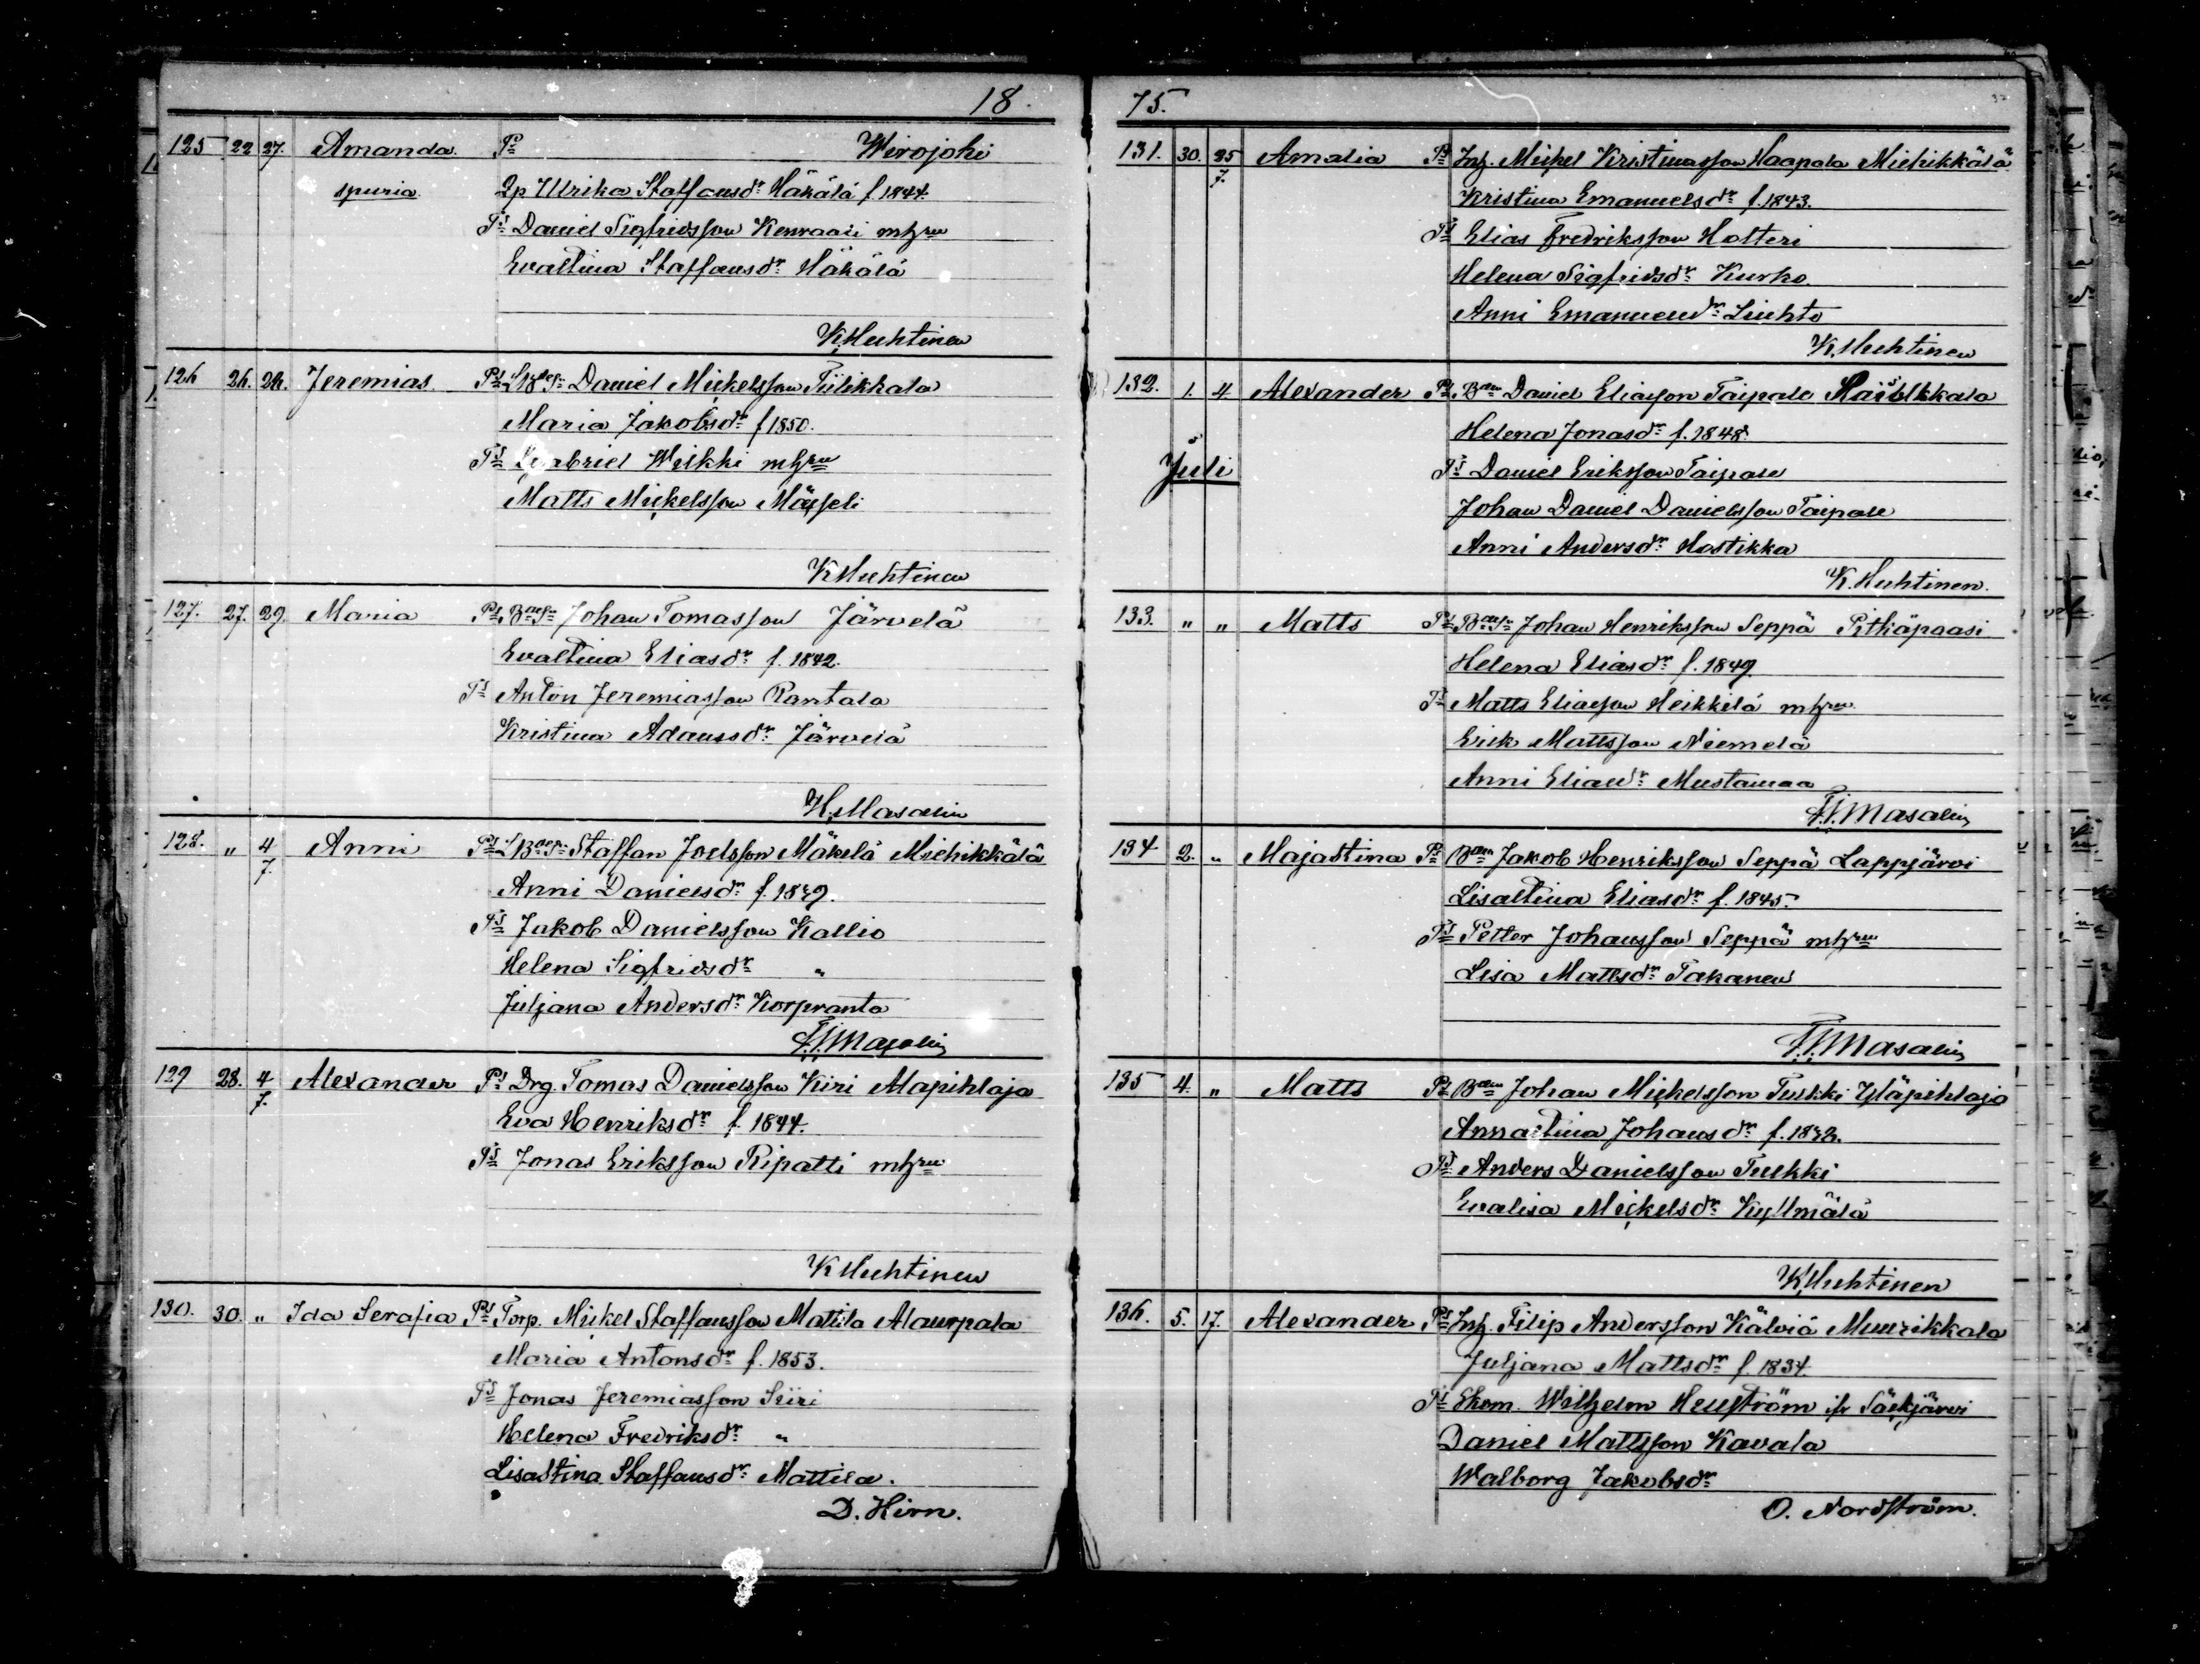 18.
125 22 27. Amanda. Ps Wirojoki
spuria. Qp Ulrika Staffansdr Häkälä f. 1844.
Ts Daniel Sigfridsson Kenraali mhru
Evastina Staffansdr Häkälä
K. Huhtinen
126 26. 26. Jeremias. Ps Daniel Mickelsson Tiilikkala
Maria Jakobsdr f 1850.
Ts Gabriel Wilkki mhru
Matts Mickelsson Mäyseli
K Huhtinen
127. 27. 29. Maria Ps Bdeson Johan Tomasson Järvelä
Evastina Eliasdr f. 1842.
Ts Anton Jeremiasson Rantala
Kristina Adamsdr Järvelä
H. Masalin
128. " 4/7. Anni Ps Staffan Joelsson Mäkelä Miehikkälä
Anni Danielsdr f. 1849.
Ts Jakob Danielsson Kallio
Helena Sigfridsdr "
Juljana Andersdr Korpranta
H. Masalin
129 28. 4/7. Alexander Ps Drg. Tomas Danielsson Kiri Alapihlaja
Eva Henriksdr f. 1844.
Ts Jonas Eriksson Ripatti mhru
K Huhtinen
130. 30. " Ida Serafia Ps Torp. Mickel Staffansson Mattila Alaurpala
Maria Antonsdr f. 1853.
Ts Jonas Jeremiasson Siiri
Helena Fredriksdr "
Lisastina Staffansdr Mattila.
D. Hirn.
75.
131. 30. 25/7. Amalia Ps Inh. Mickel Kristiansson Haapala Miehikkälä
Kristina Emanuelsdr f. 1843.
Ts Elias Fredriksson Holteri
Helena Sigfridsdr Kurko.
Anni Emanuelsdr Liuhto
K. Huhtinen
132. 1. 4 Alexander Ps Bdn Daniel Eliasson Taipale Saivikkala
Helena Jonasdr f. 1848.
Juli Ts Daniel Eriksson Taipale
Johan Daniel Danielsson Taipale
Anni Andersdr Hostikka
K. Huhtinen.
133. " " Matts Ps Bdeson Johan Henriksson Seppä Pitkäpaasi
Helena Eliasdr f. 1849.
Ts Matts Eliasson Heikkilä mhru
Erik Mattsson Niemelä
Anni Eliasdr Mustamaa
H. Masalin
134. 2. " Majastina Ps Bdn Jakob Henriksson Seppä Lappjärvi
Lisastina Eliasdr f. 1845.
Ts Petter Johansson Seppä mhru
Lisa Mattsdr Takanen
H. Masalin
135 4. " Matts Ps Bdn Johan Mickelsson Tulkki Yläpihlaja
Annastina Johansdr f. 1832.
Ts Anders Danielsson Tulkki
Evalisa Mickelsdr Kyllmälä
K. Huhtinen
136. 5. 17. Alexander Ps Inh. Filip Andersson Kälviä Muurikkala
Juljana Mattsdr f. 1834.
Ts Ekon. Wilhelm Hellström ifr Säkjärvi
Daniel Mattsson Kavala
Walborg Jakobsdr
O. Nordström.